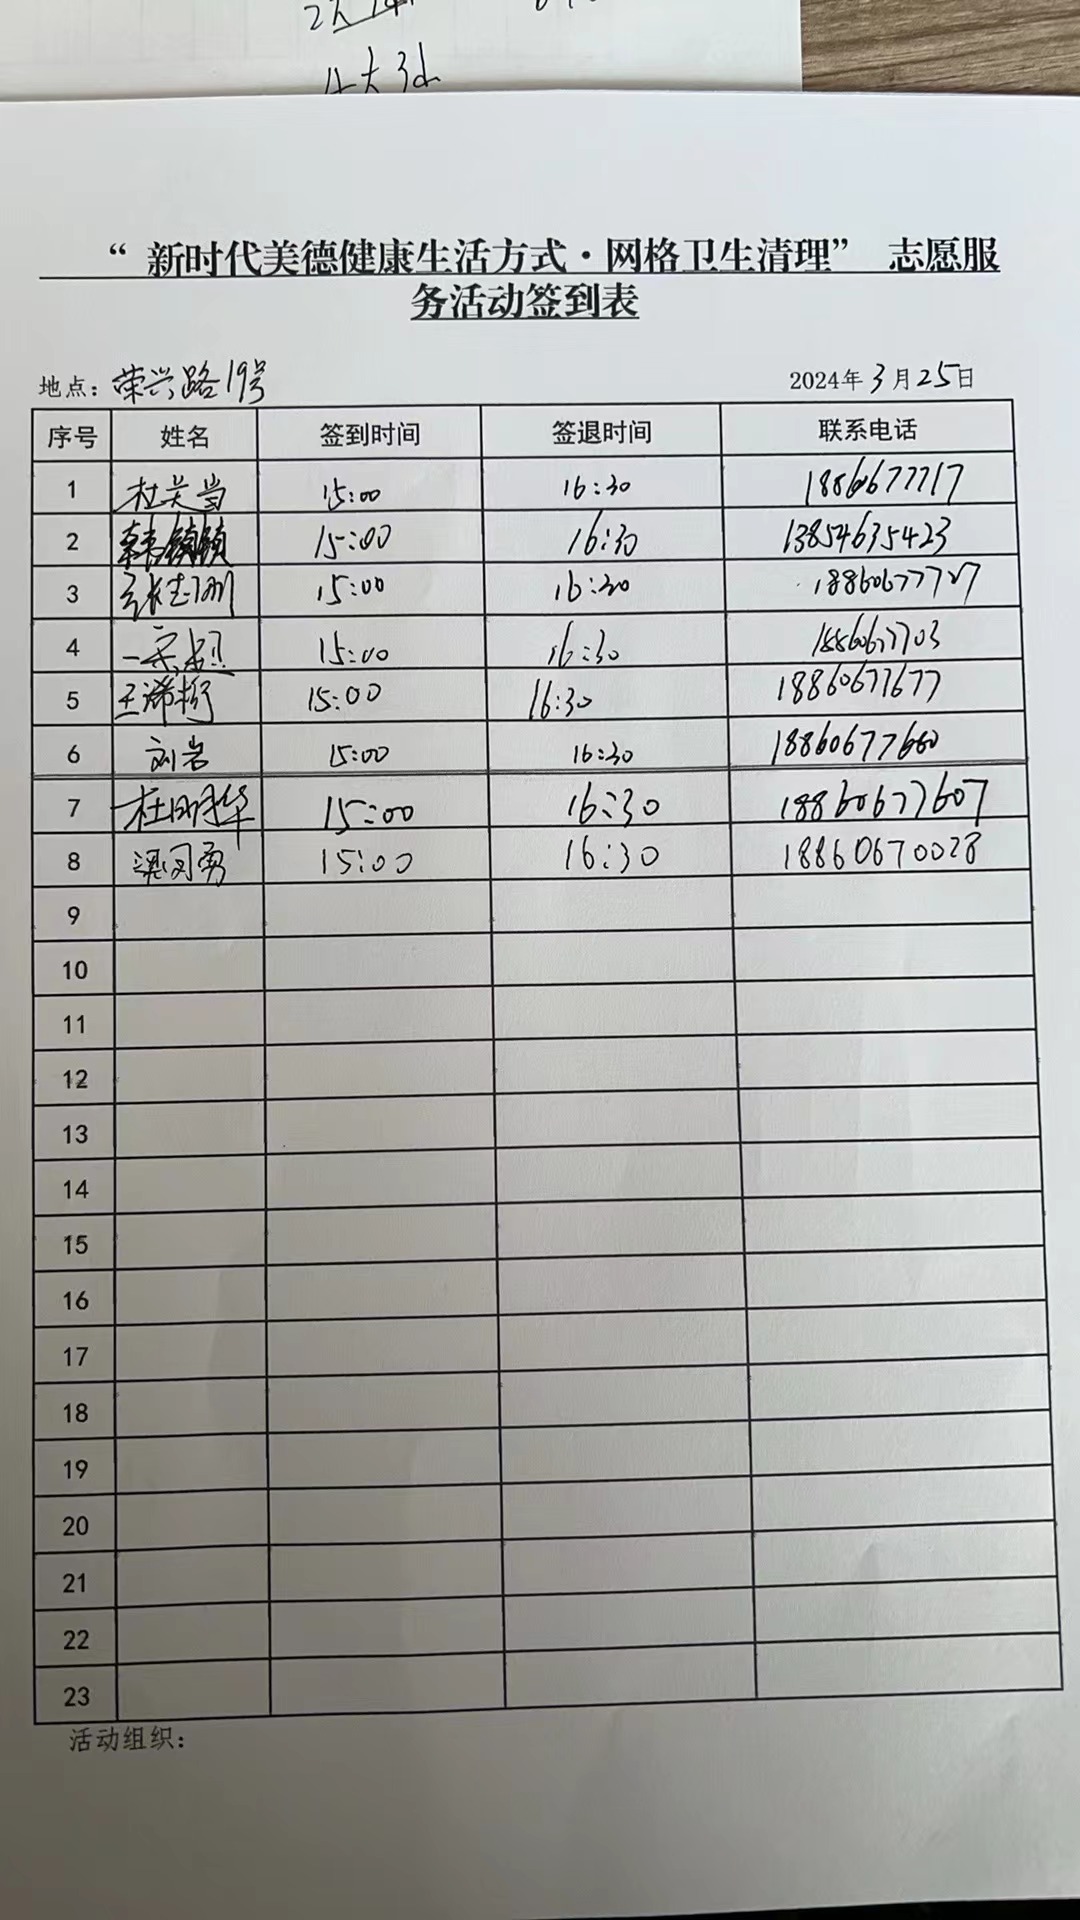 4大3小
“ 新时代美德健康生活方式·网格卫生清理” 志愿服
务活动签到表
地点：荣兴路19号 2024年3月25日
序号 姓名 签到时间 签退时间 联系电话
1 杜关当 15:00 16:30 18860677717
2 韩镇镇 15:00 16:30 13854635423
3 15:00 16:30 18860677727
4 宋超 15:00 16:30 18860677703
5 王 15:00 16:30 18860677677
6 刘岩 15:00 16:30 18860677660
7 杜明华 15:00 16:30 18860677607
8 梁同勇 15:00 16:30 18860670028
9
10
11
12
13
14
15
16
17
18
19
20
21
22
23
活动组织：